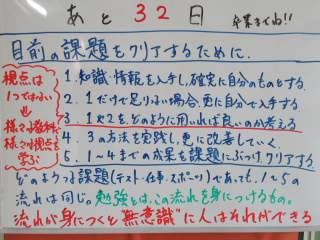 あと 32 日 卒業まで!!
目前の課題をクリアするために、
視点は
1つではない
様々な教科で
様々な視点を
学ぶ
1. 知識・情報を入手し、確実に自分のものとする.
2. 1だけで足りない場合、更に自分で入手する
3. 1と2を、どのように用いれば良いのか考える
4. 3の方法を実践し、更に改善していく.
5. 1〜4までの成果を課題にぶつけ、クリアする
どのような課題(テスト・仕事・スポーツ)であっても、1〜5の
流れは同じ。勉強とは、この流れを身につけるもの。
流れが身につくと"無意識"に人はそれができる